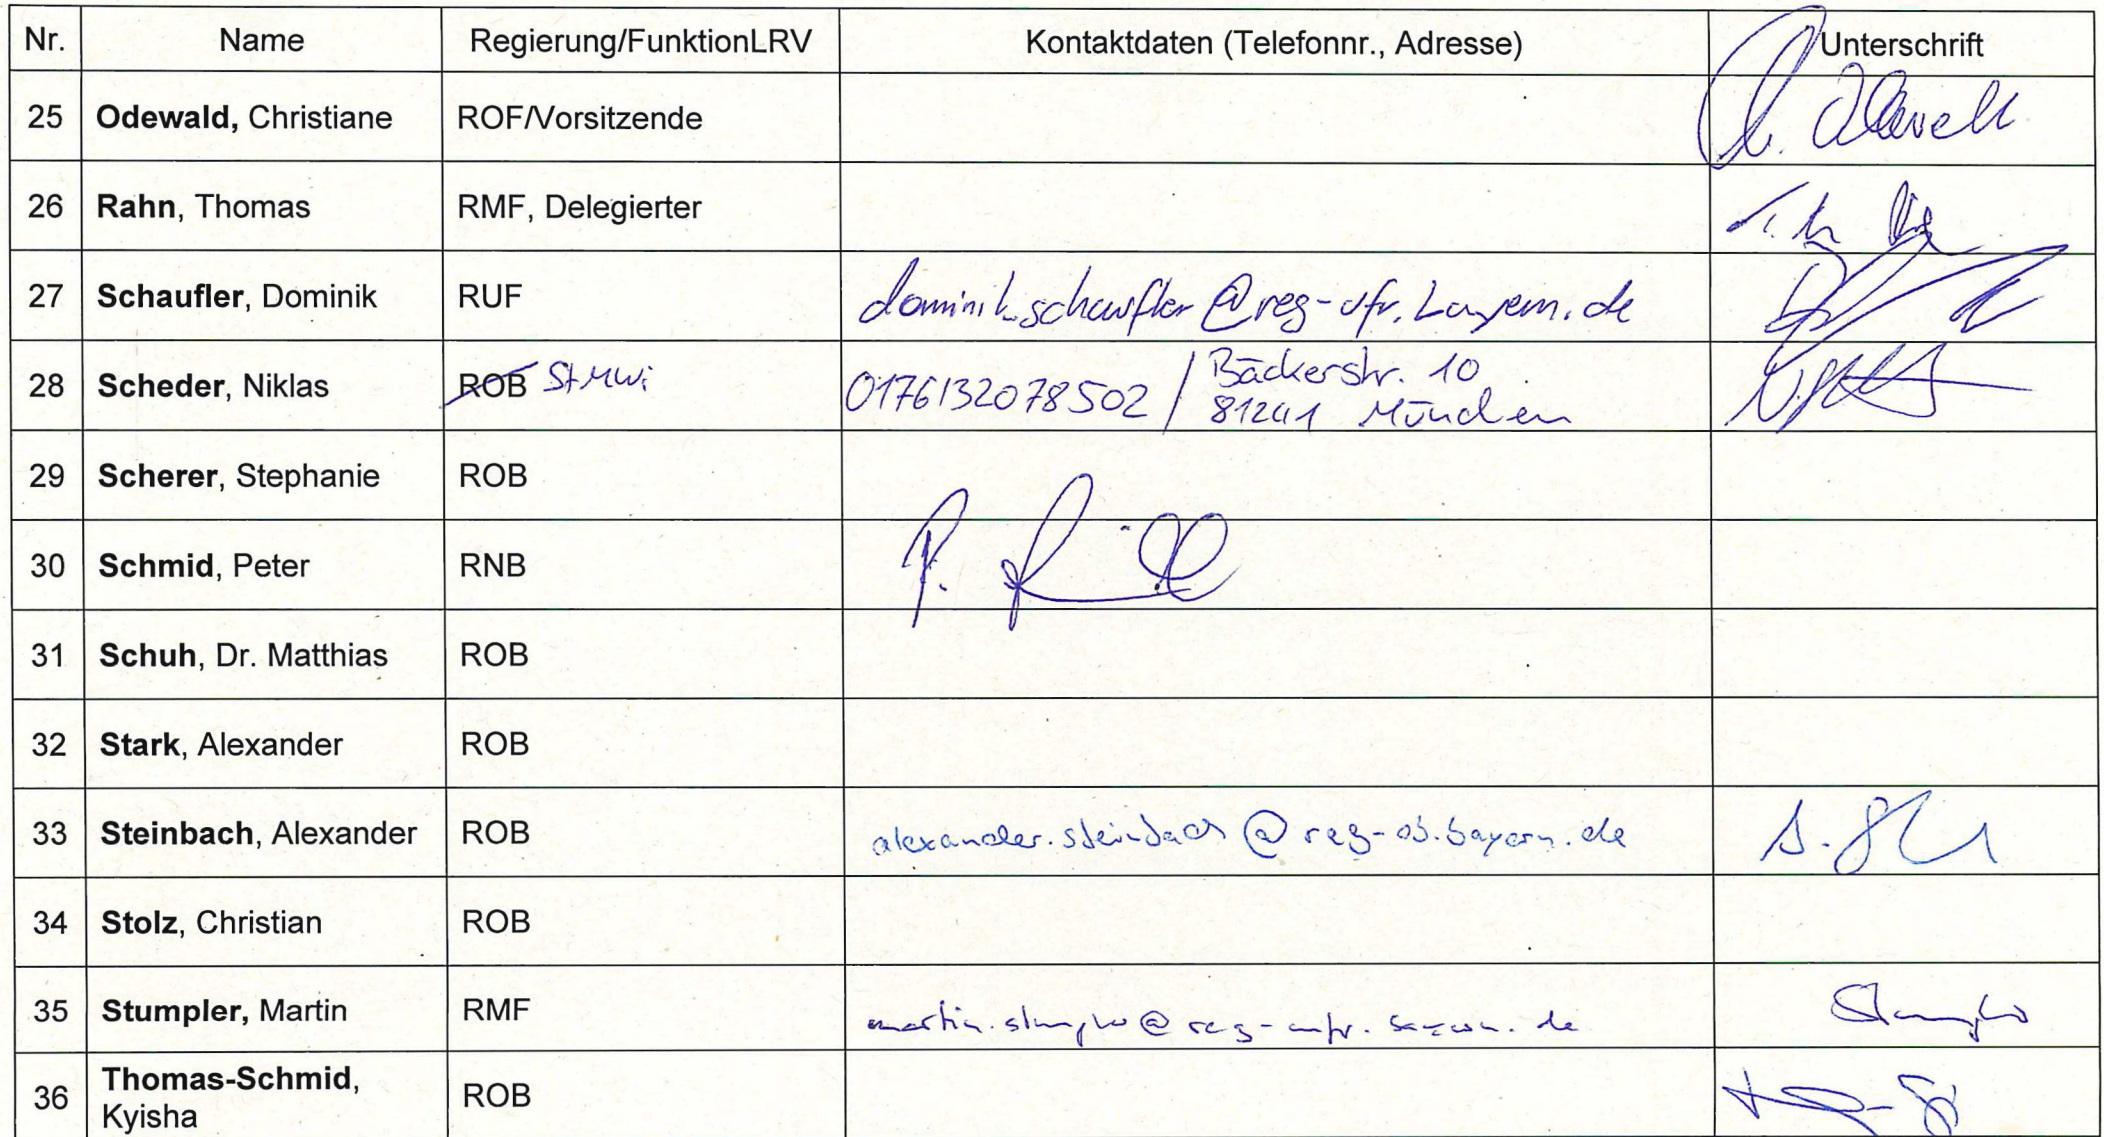 Nr. Name Regierung/FunktionLRV Kontaktdaten (Telefonnr., Adresse) Unterschrift
25 Odewald, Christiane ROF/Vorsitzende
26 Rahn, Thomas RMF, Delegierter
27 Schaufler, Dominik RUF dominik.schaufler@reg-ufr.bayern.de
28 Scheder, Niklas ROB StMWi 0176132078502 / Bäckerstr. 10
81241 München
29 Scherer, Stephanie ROB
30 Schmid, Peter RNB
31 Schuh, Dr. Matthias ROB
32 Stark, Alexander ROB
33 Steinbach, Alexander ROB alexander.steinbach@reg-ob.bayern.de
34 Stolz, Christian ROB
35 Stumpler, Martin RMF martin.stumpler@reg-mfr.bayern.de Stumpler
36 Thomas-Schmid,
Kyisha ROB